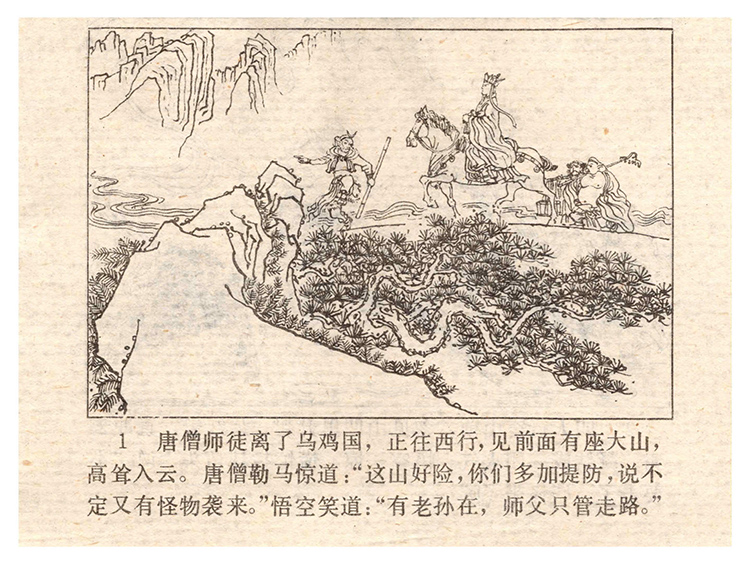 1 唐僧师徒离了乌鸡国，正往西行，见前面有座大山，
高耸入云。唐僧勒马惊道：“这山好险，你们多加提防，说不
定又有怪物袭来。”悟空笑道：“有老孙在，师父只管走路。”